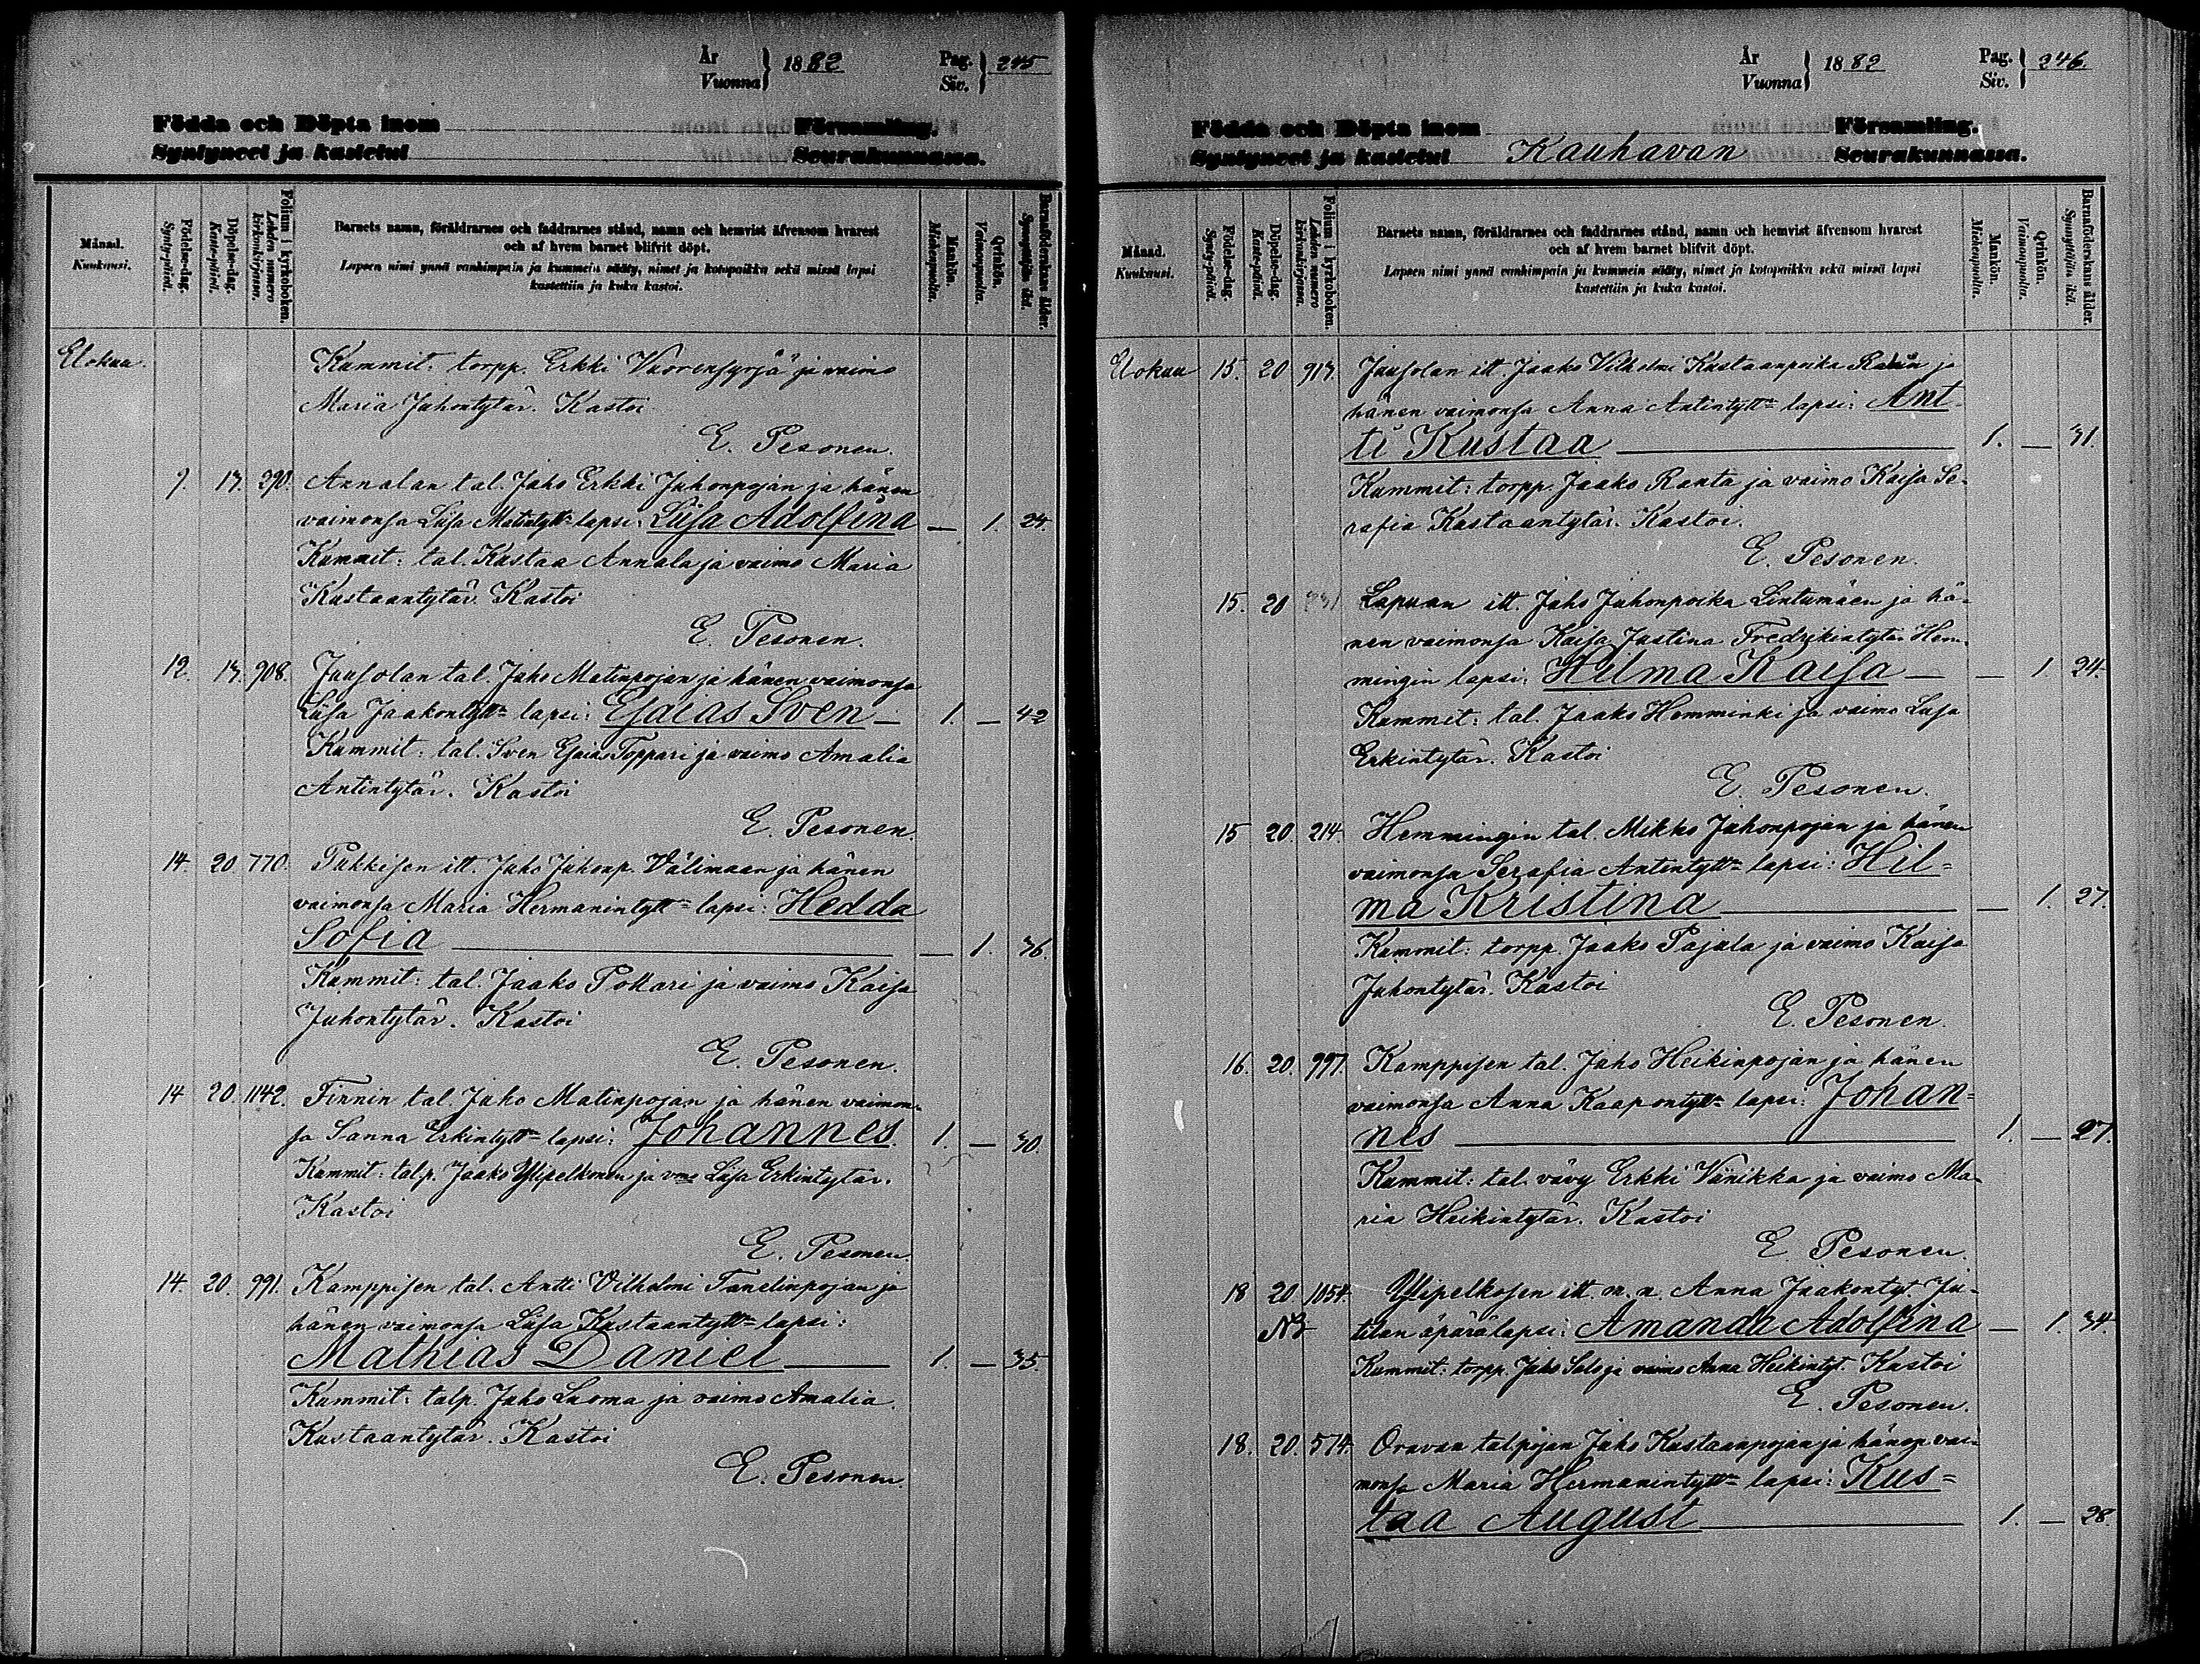 År
Vuonna } 1882
Pag.
Siv. } 245
Födda och Döpta inom Församling.
Syntyneet ja kastetut Seurakunnassa.
Månad.
Kuukausi.
Födelse-dag.
Synty-päivä.
Döpelse-dag.
Kaste-päivä.
Folium i kyrkoboken.
Lehden numero kirkonkirjassa.
Barnets namn, föräldrarnes och faddrarnes stånd, namn och hemvist äfvensom hvarest
och af hvem barnet blifvit döpt.
Lapsen nimi ynnä vanhimpain ja kummein sääty, nimet ja kotopaikka sekä missä lapsi
kastettiin ja kuka kastoi.
Mankön.
Miehenpuolta.
Qvinkön.
Vaimonpuolta.
Barnaföderskans ålder.
Synnyttäjän ikä.
Elokuu. Kummit. torpp. Erkki Vuorensyrjä ja vaimo
Maria Juhontytär. Kastoi
E. Pesonen.
9. 13. 290. Annalan tal. Juho Erkki Juhonpojan ja hänen
vaimonsa Liisa Matintytt= lapsi: Liisa Adolfina — 1. 24.
Kummit: tal. Kustaa Annala ja vaimo Maria
Kustaantytär. Kastoi
E. Pesonen.
12. 13. 908. Jausolan tal. Juho Matinpojan ja hänen vaimonsa
Liisa Jaakontytt= lapsi: Esaias Sven — 1. — 42
Kummit: tal. Sven Esaias Toppari ja vaimo Amalia
Antintytär. Kastoi
E. Pesonen.
14. 20. 770. Pukkisen itt. Juho Juhonp. Välimaan ja hänen
vaimonsa Maria Hermanintytt= lapsi: Hedda
Sofia — — 1. 36.
Kummit: tal. Jaako Pottari ja vaimo Kaisa
Juhontytär. Kastoi
E. Pesonen.
14 20. 1142. Finnin tal. Juho Matinpojan ja hänen vaimon-
sa Sanna Erkintytt= lapsi: Johannes. 1. — 30.
Kummit: talp. Jaako Ylipelkonen ja vmo Liisa Erkintytär.
Kastoi
E. Pesonen.
14. 20. 991. Kamppisen tal. Antti Vilhelmi Tanelinpojan ja
hänen vaimonsa Liisa Kustaantytt= lapsi:
Mathias Daniel — 1. — 35.
Kummit: talp. Juho Luoma ja vaimo Amalia
Kustaantytär. Kastoi
E. Pesonen.
År
Vuonna } 1882
Pag.
Siv. } 246.
Födda och Döpta inom Församling.
Syntyneet ja kastetut Kauhavan Seurakunnassa.
Månad.
Kuukausi.
Födelse-dag.
Synty-päivä.
Döpelse-dag.
Kaste-päivä.
Folium i kyrkoboken.
Lehden numero kirkonkirjassa.
Barnets namn, föräldrarnes och faddrarnes stånd, namn och hemvist äfvensom hvarest
och af hvem barnet blifvit döpt.
Lapsen nimi ynnä vanhimpain ja kummein sääty, nimet ja kotopaikka sekä missä lapsi
kastettiin ja kuka kastoi.
Mankön.
Miehenpuolta.
Qvinkön.
Vaimonpuolta.
Barnaföderskans ålder.
Synnyttäjän ikä.
Elokuu 15. 20 913. Jausolan itt. Jaako Vilhelmi Kustaanpoika ja
hänen vaimonsa Anna Antintytt= lapsi: Ant-
ti Kustaa — 1. — 31.
Kummit: torpp. Jaako Ranta ja vaimo Kaisa Se-
rafia Kustaantytär. Kastoi.
E. Pesonen.
15. 20 Lapuan itt. Juho Juhonpoika Lintumäen ja hä-
nen vaimonsa Kaisa Justina Fredrikintytär Hem-
mingin lapsi: Hilma Kaisa — — 1. 24.
Kummit: tal. Jaako Hemminki ja vaimo Liisa
Erkintytär. Kastoi
E. Pesonen.
15 20. 214. Hemmingin tal. Mikko Juhonpojan ja hänen
vaimonsa Serafia Antintytt= lapsi: Hil=
ma Kristina — — 1. 27.
Kummit: torpp. Jaako Pajula ja vaimo Kaisa
Juhontytär. Kastoi
E. Pesonen.
16. 20. 997. Kamppisen tal. Juho Heikinpojan ja hänen
vaimonsa Anna Kaapontytt= lapsi: Johan=
nes — 1. — 27.
Kummit: tal. vävy Erkki Viinikka ja vaimo Ma-
ria Heikintytär. Kastoi
E. Pesonen.
18 20. 1054. Ylipelkosen itt. n. n. Anna Jaakontyt. Ju-
NB tilan äpärälapsi: Amanda Adolfina — 1. 34.
Kummit: torpp. Juho Salo ja vaimo Anna Heikintyt. Kastoi
E. Pesonen.
18. 20. 574. Oravan talpojan Juho Kustaanpojan ja hänen vai-
monsa Maria Hermanintytt= lapsi: Kus=
taa August — 1. — 28.